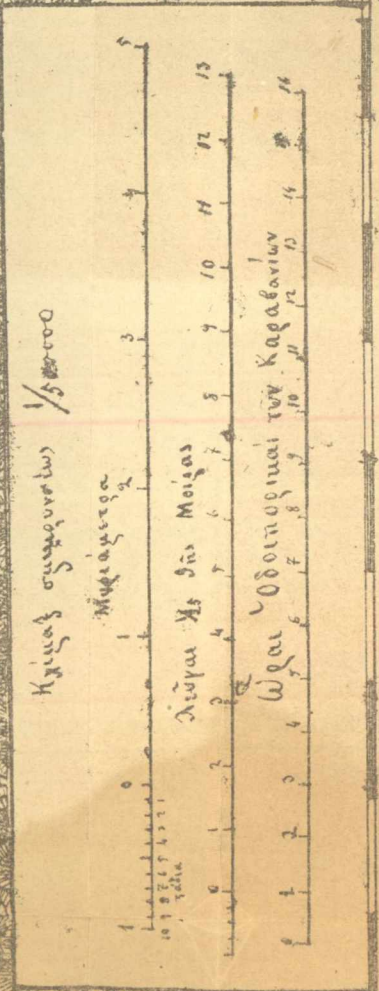 Κλίμαξ σμικρύνσεως 1/500000
Μυριάμετρα
1 0 1 2 3 4 5
10 9 8 7 6 5 4 3 2 1
Στάδια
Λεῦγαι τῆς Μοίρας
0 1 2 3 4 5 6 7 8 9 10 11 12 13
Ὧραι Ὁδοιπορικαὶ τῶν Καραβανίων
0 1 2 3 4 5 6 7 8 9 10 11 12 13 14 16